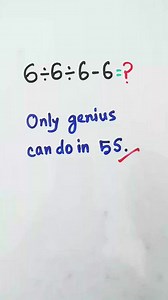 6÷6÷6-6=?
Only genius
can do in 5S.